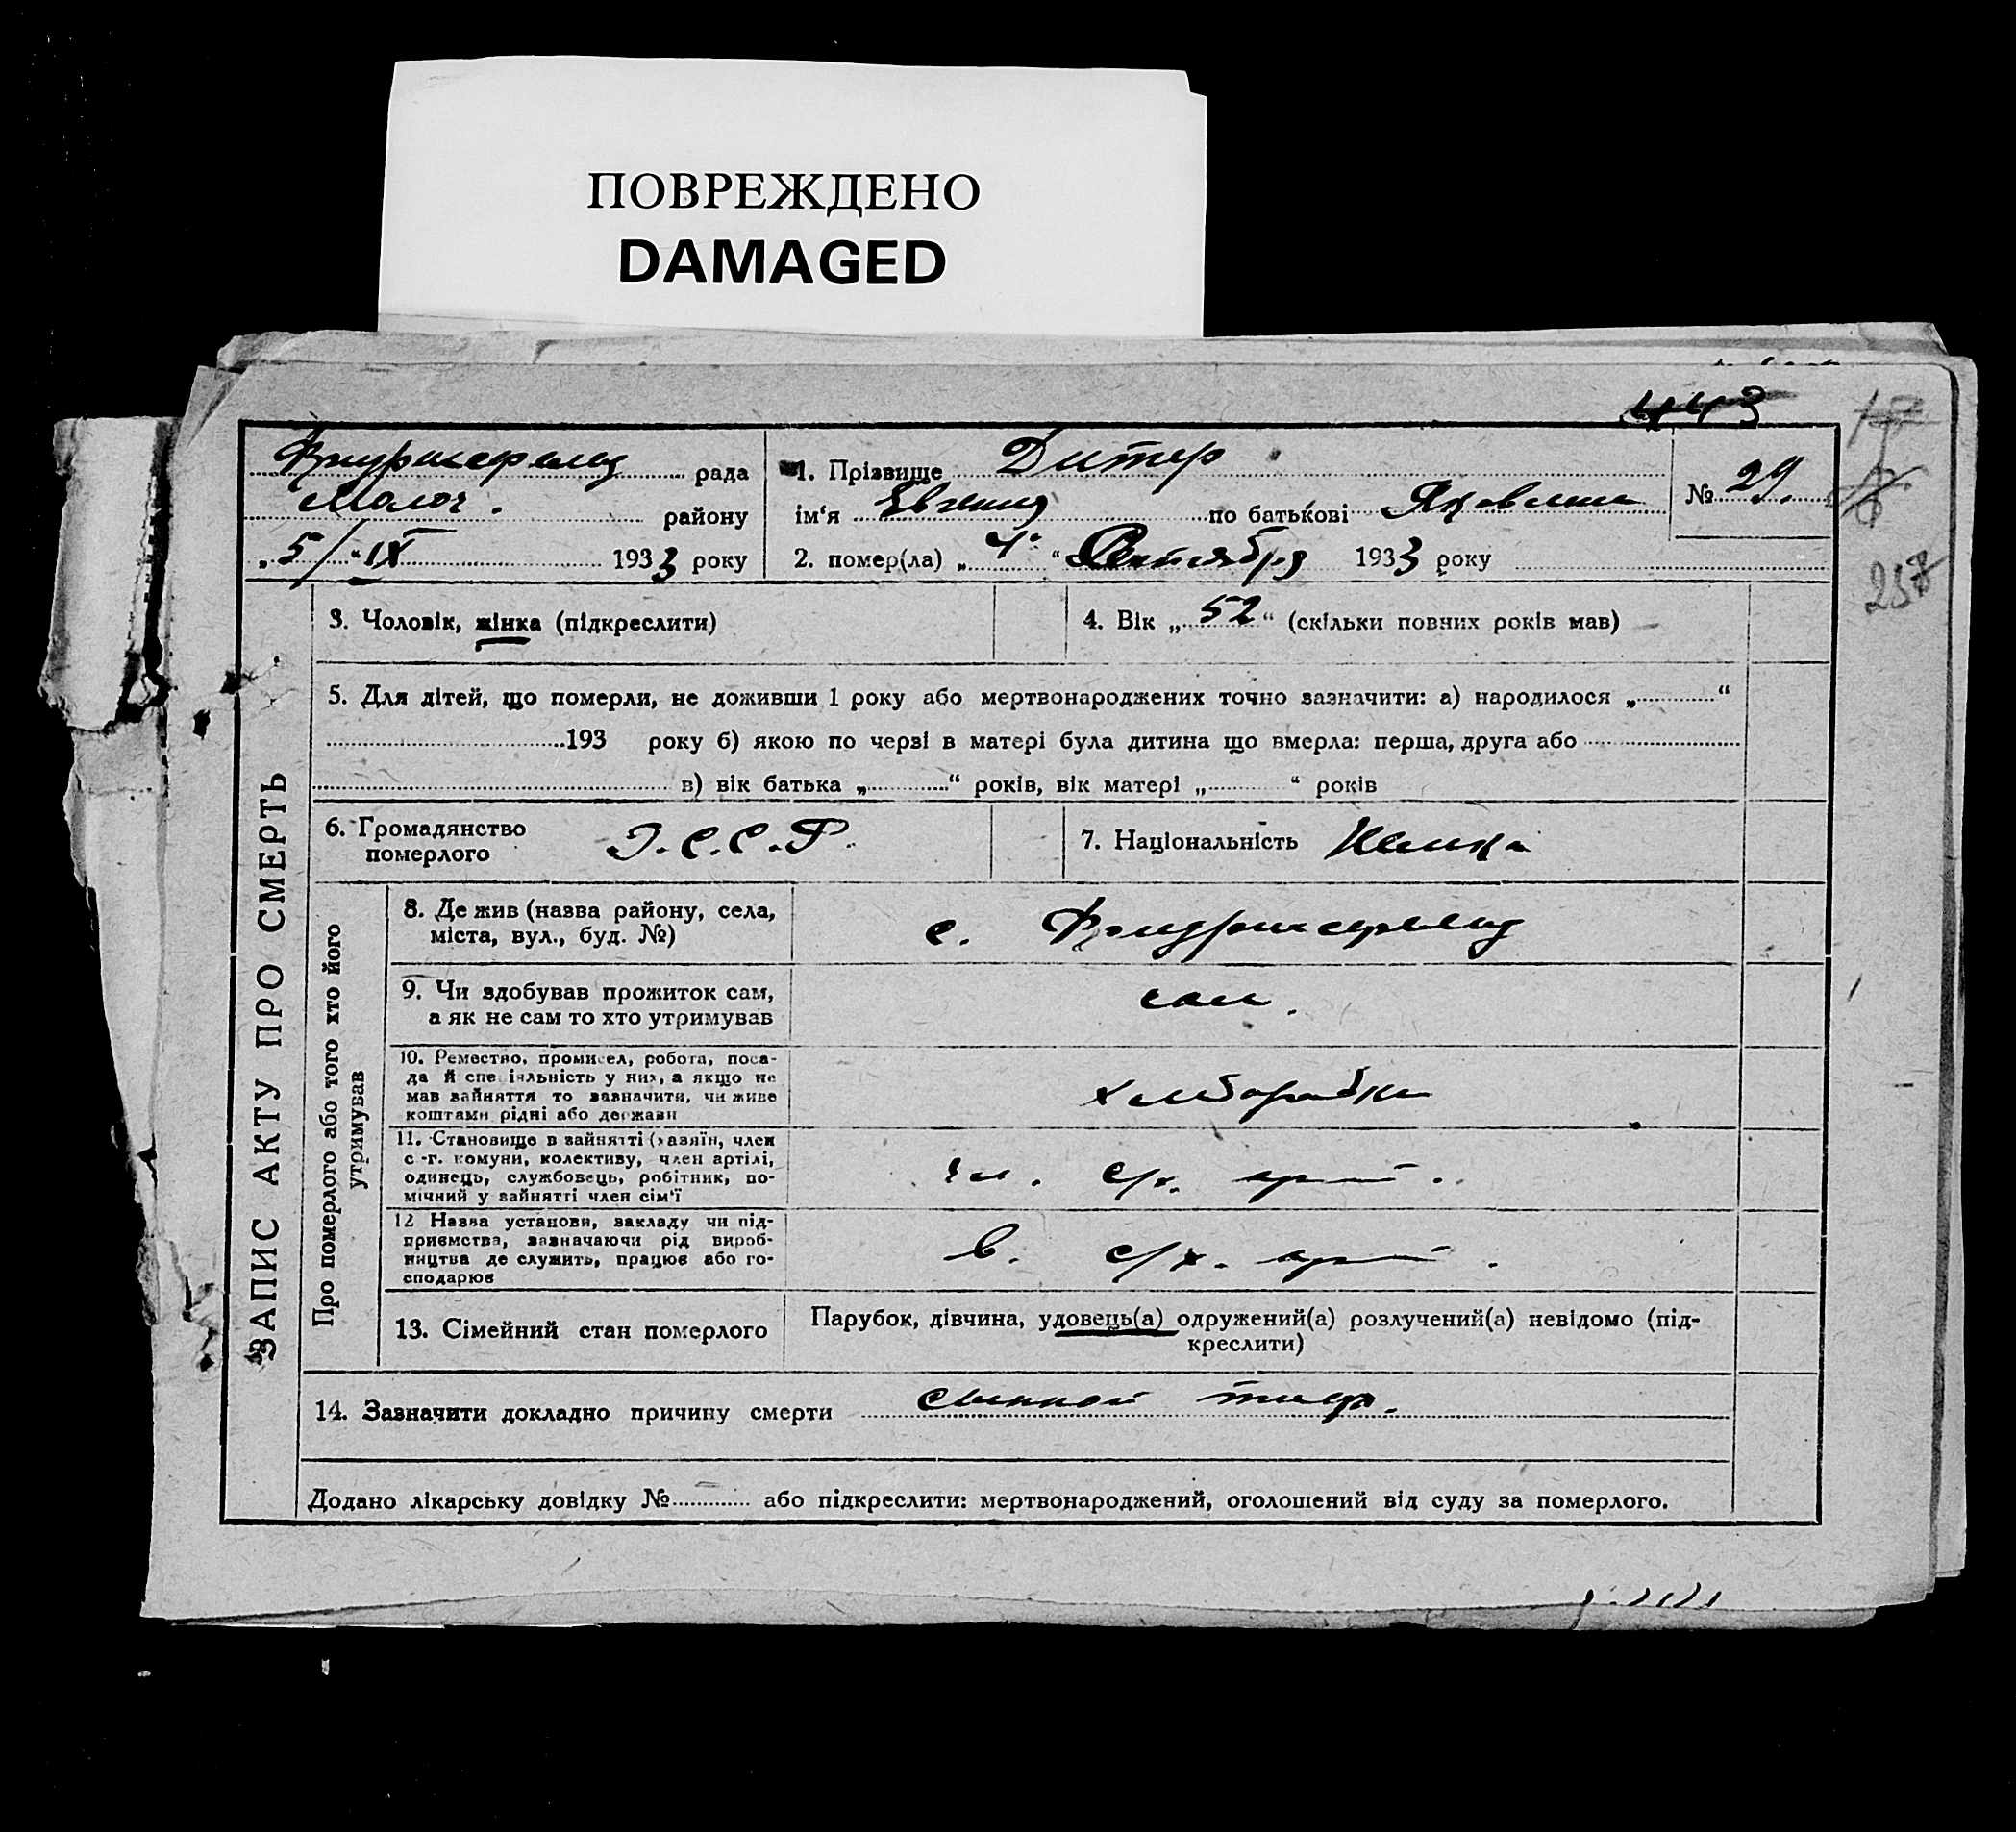 ПОВРЕЖДЕНО
DAMAGED
443
рада
Молоч. району
„5/“ IX 1933 року
1. Прізвище Дитер
ім‘я Евгения по батькові Яковлена
2. помер(ла) „4“ Сентября 1933 року
№ 29.
257
ЗАПИС АКТУ ПРО СМЕРТЬ
3. Чоловік, жінка (підкреслити)
4. Вік „52“ (скільки повних років мав)
5. Для дітей, що померли, не доживши 1 року або мертвонароджених точно зазначити: а) народилося „ “
193 року б) якою по черзі в матері була дитина що вмерла: перша, друга або
в) вік батька „ “ років, вік матері „ “ років
6. Громадянство
померлого
С.С.Р.
7. Національність Немка
Про померлого або того хто його
утримував
8. Де жив (назва району, села,
міста, вул., буд. №)
с.
9. Чи здобував прожиток сам,
а як не сам то хто утримував
сам.
10. Ремество, промисел, робота, поса-
да й спеціяльність у них, а якщо не
мав зайняття то зазначити, чи живе
коштами рідні або держави
11. Становище в зайнятті (хазяїн, член
с.-г. комуни, колективу, член артілі,
одинець, службовець, робітник, по-
мічний у зайнятті член сім‘ї
чл. с/х. арт.
12 Назва установи, закладу чи під-
приємства, зазначаючи рід вироб-
ництва де служить, працює або го-
сподарює
в. с/х. арт.
13. Сімейний стан померлого
Парубок, дівчина, удовець(а) одружений(а) розлучений(а) невідомо (під-
креслити)
14. Зазначити докладно причину смерти сыпной тиф.
Додано лікарську довідку № або підкреслити: мертвонароджений, оголошений від суду за померлого.